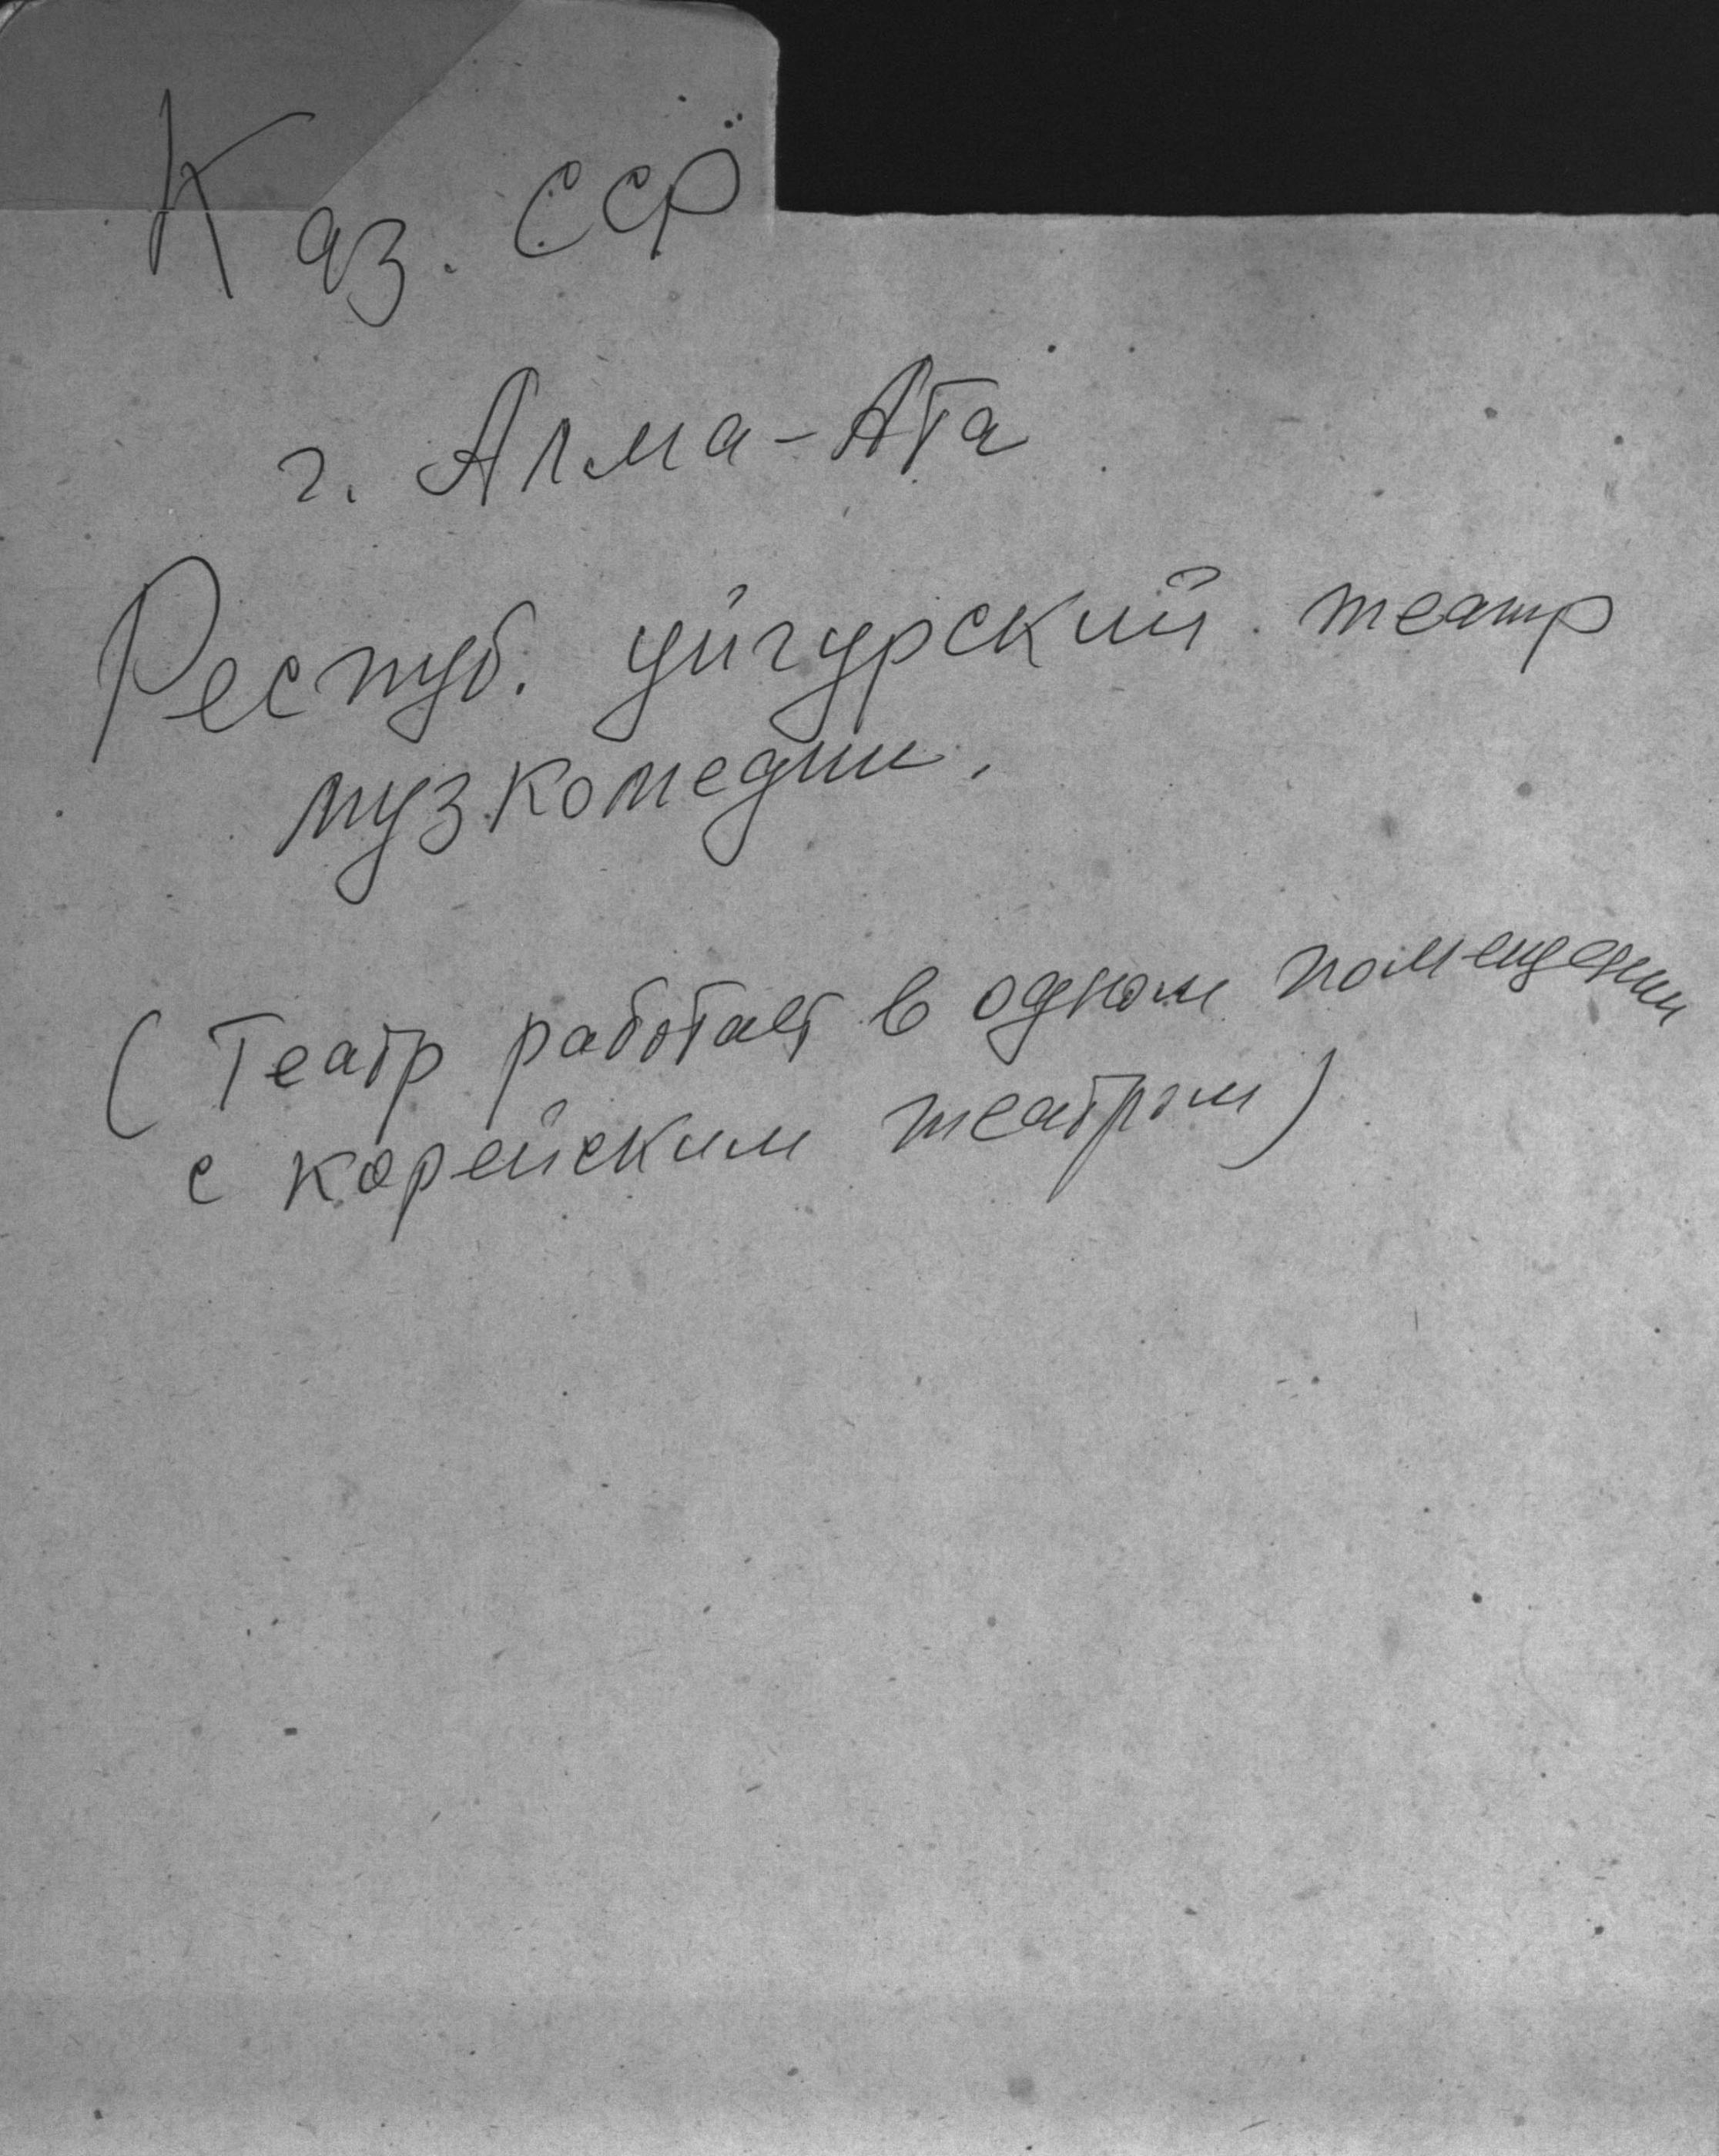 Каз. ССР
г. Алма-Ата
Респуб. уйгурский театр
музкомедии.
(Театр работает в одном помещении
с корейским театром)